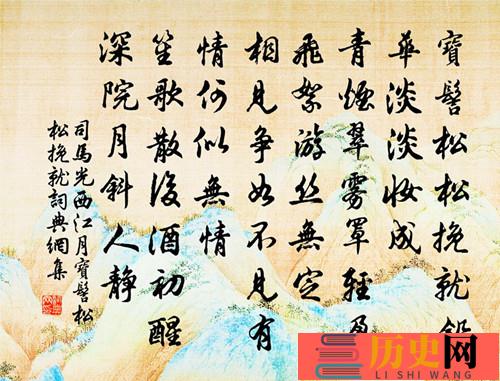 寶髻松松挽就鉛
華淡淡妝成
青煙翠霧罩輕盈
飛絮游絲無定
相見爭如不見有
情何似無情
笙歌散後酒初醒
深院月斜人靜
司馬光西江月寶髻松
松挽就詞典網集
历史网
LI SHI WANG